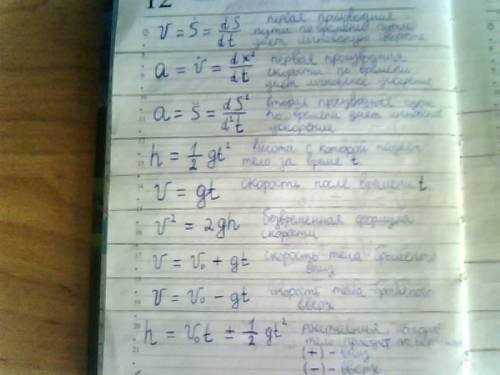 12
v = Ṡ = dS/dt первая производная
пути по времени
даёт мгновенную
a = v̇ = dx²/dt первая производная
скорости по времени
даёт мгновенное ускорение
a = S̈ = dS²/d²t вторая производная
по времени даёт
ускорение
h = 1/2 gt² высота с которой падает
тело за время t
v = gt скорость после времени t
v² = 2gh безвременная формула
скорости
v = v₀ + gt скорость тела брошенного
вниз
v = v₀ - gt скорость тела брошенного
вверх
h = v₀t ± 1/2 gt² расстояние,
тело
(+) - вниз
(-) - вверх